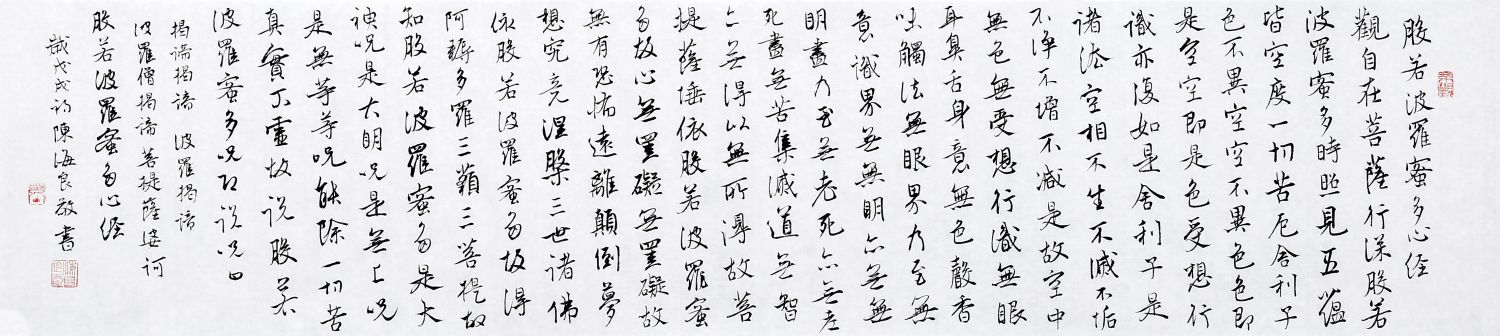 般若波羅蜜多心经
觀自在菩薩行深般若
波羅蜜多時照見五蘊
皆空度一切苦厄舍利子
色不異空空不異色色即
是空空即是色受想行
識亦復如是舍利子是
諸法空相不生不滅不垢
不淨不增不减是故空中
無色無受想行識無眼
耳鼻舌身意無色聲香
味觸法無眼界乃至無
意識界無無明亦無無
明盡乃至無老死亦無老
死盡無苦集滅道無智
亦無得以無所得故菩
提薩埵依般若波羅蜜
多故心無罣礙無罣礙故
無有恐怖遠離顛倒夢
想究竟涅槃三世諸佛
依般若波羅蜜多故得
阿耨多羅三藐三菩提故
知般若波羅蜜多是大
神咒是大明咒是無上咒
是無等等咒能除一切苦
真實不虛故說般若
波羅蜜多咒即說咒曰
揭諦揭諦 波羅揭諦
波羅僧揭諦菩提薩婆訶
般若波羅蜜多心经
歲戊戌陳海良敬書